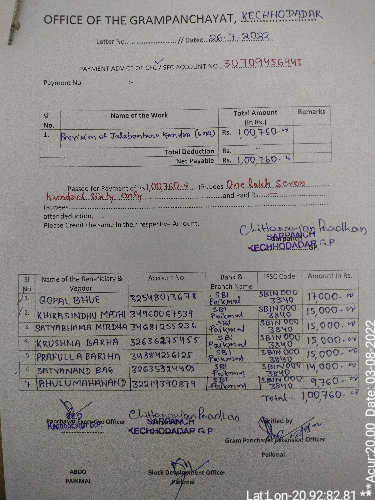 OFFICE OF THE GRAMPANCHAYAT, KECHHODADAR
Letter No............ // Dated. 26-7-2022
PAYMENT ADVICE OF CFC / SFC ACCOUNT NO. 30709456943
Payment No :-
Sl No. Name of the Work Total Amount (in Rs.) Remarks
1. Provision of Jalachhatra Rs. 1,00,760=00
Total Deduction Rs.
Net Payable Rs. 1,00,760=00
Passed for Payment of Rs 1,00760=00 (Rupees One lakh Seven
hundred Sixty Only and Paid Rs
(Rupees
after deduction.
Please Credit the same in the respective Account.
Chittaranjan Pradhan
SARPANCH
KECHHODADAR G.P
Sl No Name of the Beneficiary & Vendor Account No Bank & Branch Name IFSC Code Amount in Rs.
1. GOPAL BHUE 32548013678 SBI Paikmal SBIN000 3840 17000=00
2. KHIRASINDHU MAJHI 34960067539 SBI Paikmal SBIN000 3840 15,000=00
3. SATYABHAMA MIRDHA 34681255236 SBI Paikmal SBIN000 3840 15,000=00
4. KRUSHNA BARHA 32636275455 SBI Paikmal SBIN000 3840 15,000=00
5. PRAFULLA BARIHA 34384256125 SBI Paikmal SBIN000 3840 15,000=00
6. SATYANAND BAG 32635324405 SBI Paikmal SBIN000 3840 14,000=00
7. RAHUL MAHANAND 32219390879 SBI Paikmal SBIN000 3840 9,760=00
Total- 1,00,760=00
Panchayat Executive Officer
Chittaranjan Pradhan
SARPANCH
KECHHODADAR G.P
Verified by
Gram Panchayat Extension Officer
Paikmal
ABDO
PAIKMAL
Block Development Officer
Paikmal
Lat:Lon-20.92:82.81 **Acur:20.00 Date:03-08-2022